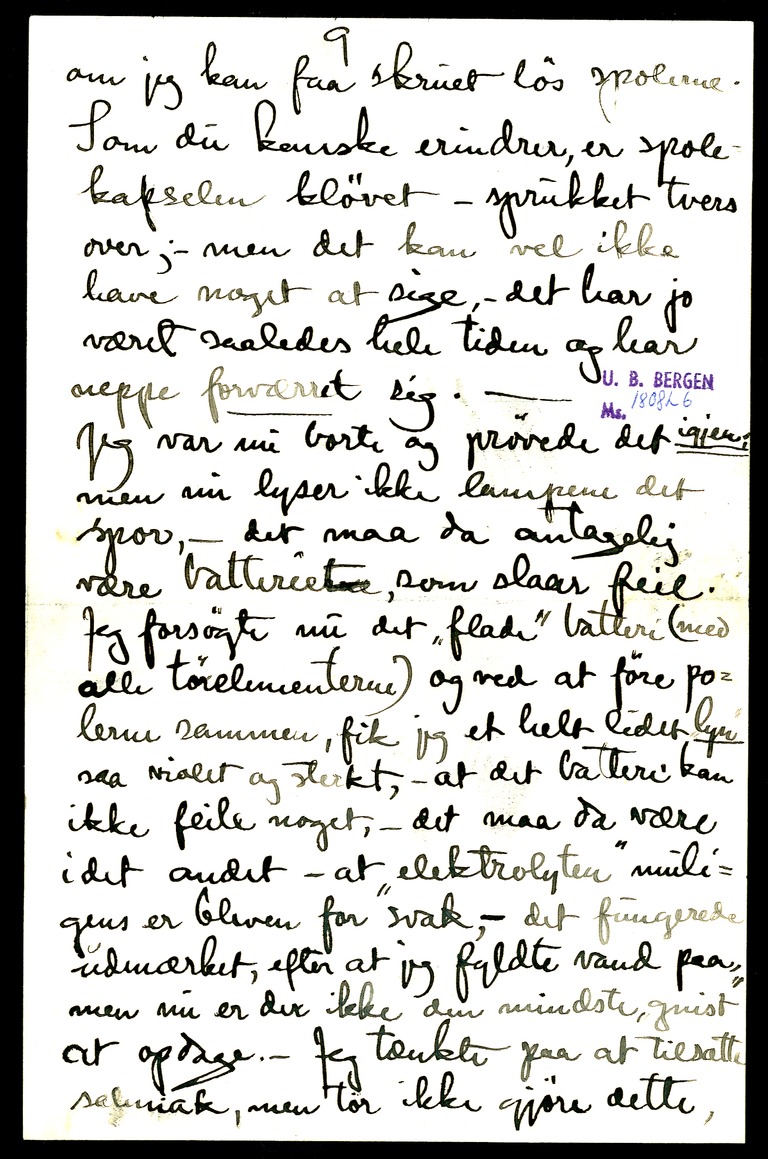 9
om jeg kan faa skruet lös spolerne.
Som du kanske erindrer, er spole-
kapselen klövet – sprukket tvers
over; – men det kan vel ikke
have noget at sige, – det har jo
været saaledes hele tiden og har
neppe forværret sig. —
U. B. BERGEN
Ms. 1808 L 6
Jeg var nu borte og prövede det igjen;
men nu lyser ikke lampene det
spor, – det maa da antagelig
være batteriet, som slaar feil.
Jeg forsögte nu det „flade" batteri (med
alle törelementerne) og ved at före po=
lerne sammen, fik jeg et helt lidet lyn
saa violet og sterkt, – at det batteri kan
ikke feile noget, – det maa da være
i det andet – at „elektrolyten" muli=
gens er bleven for svak, – det fungerede
udmærket, efter at jeg fyldte vand paa,
men nu er der ikke den mindste „gnist"
at opdage. – Jeg tænkte paa at tilsatte
salmiak, men tör ikke gjöre dette,